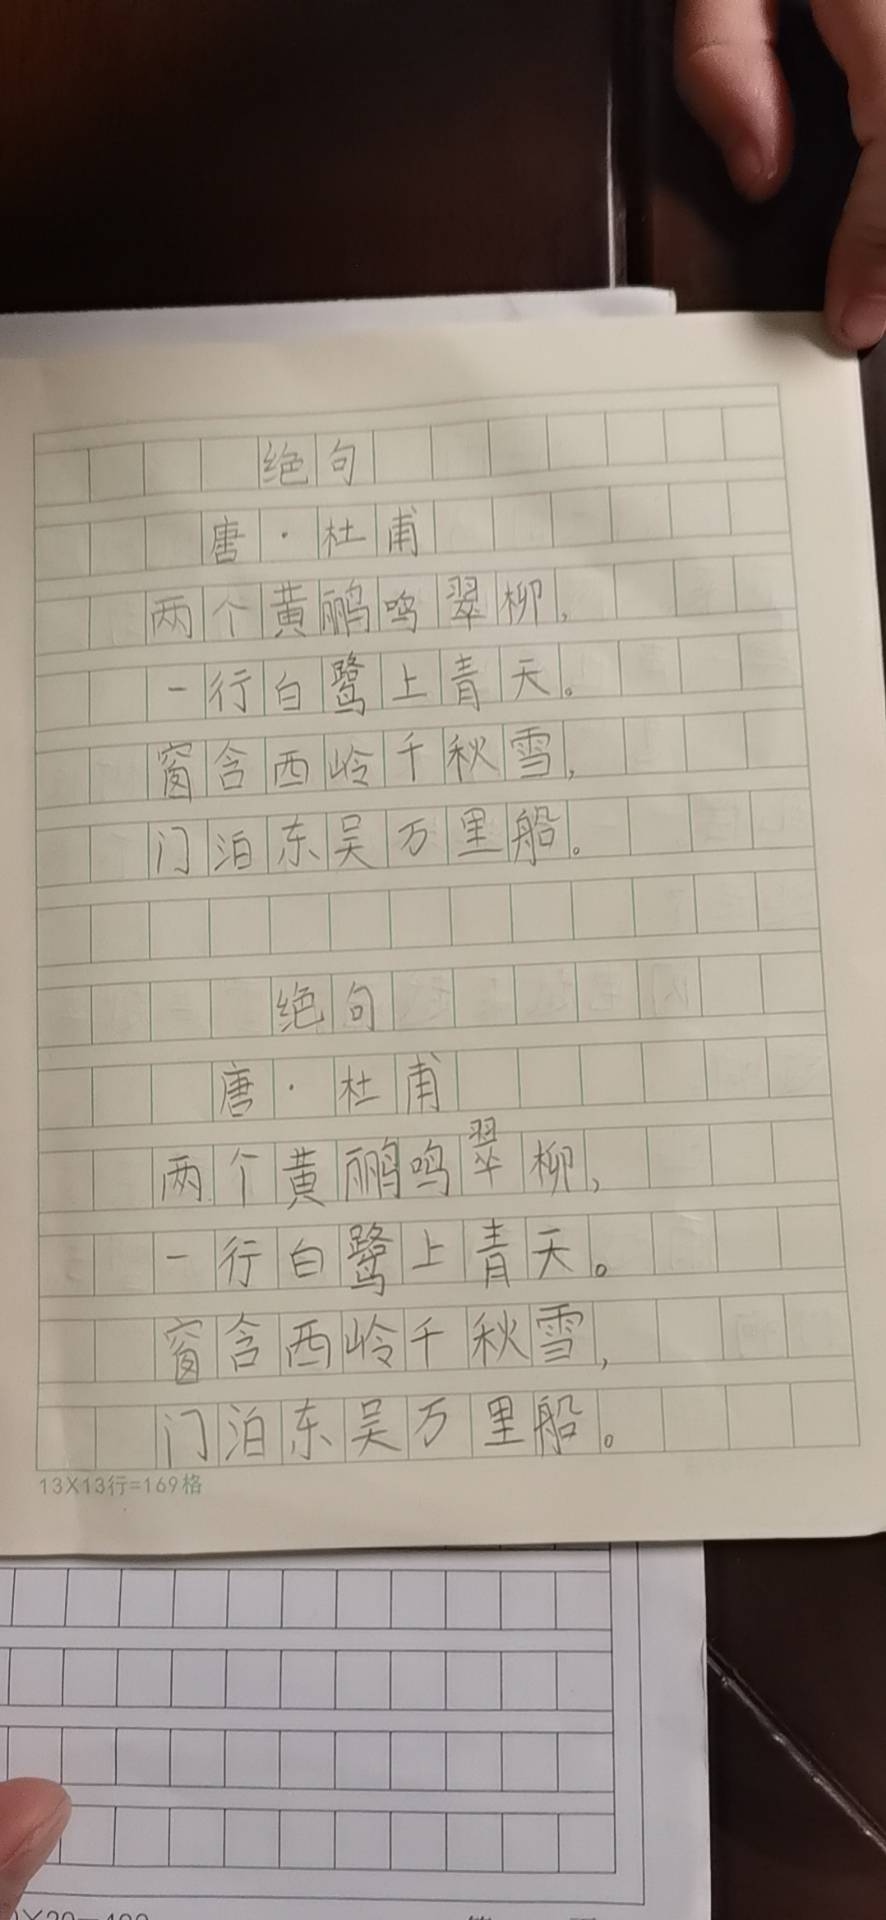 绝句
唐·杜甫
两个黄鹂鸣翠柳,
一行白鹭上青天。
窗含西岭千秋雪,
门泊东吴万里船。
绝句
唐·杜甫
两个黄鹂鸣翠柳,
一行白鹭上青天。
窗含西岭千秋雪,
门泊东吴万里船。
13X13行=169格